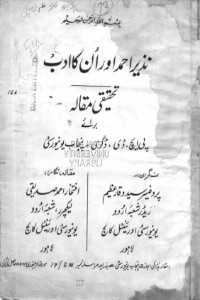 بسم اللہ الرحمن الرحیم
نذیر احمد اور اُن کا ادب
تحقیقی مقالہ
برائے
پی ایچ، ڈی، ڈگری پنجاب یونیورسٹی
نگران:
پروفیسر سید وقار عظیم
ریڈر شعبۂ اردو
یونیورسٹی اورینٹل کالج
لاہور
مقالہ نگار:
افتخار احمد صدیقی
لیکچرر شعبۂ اردو
یونیورسٹی اورینٹل کالج
لاہور